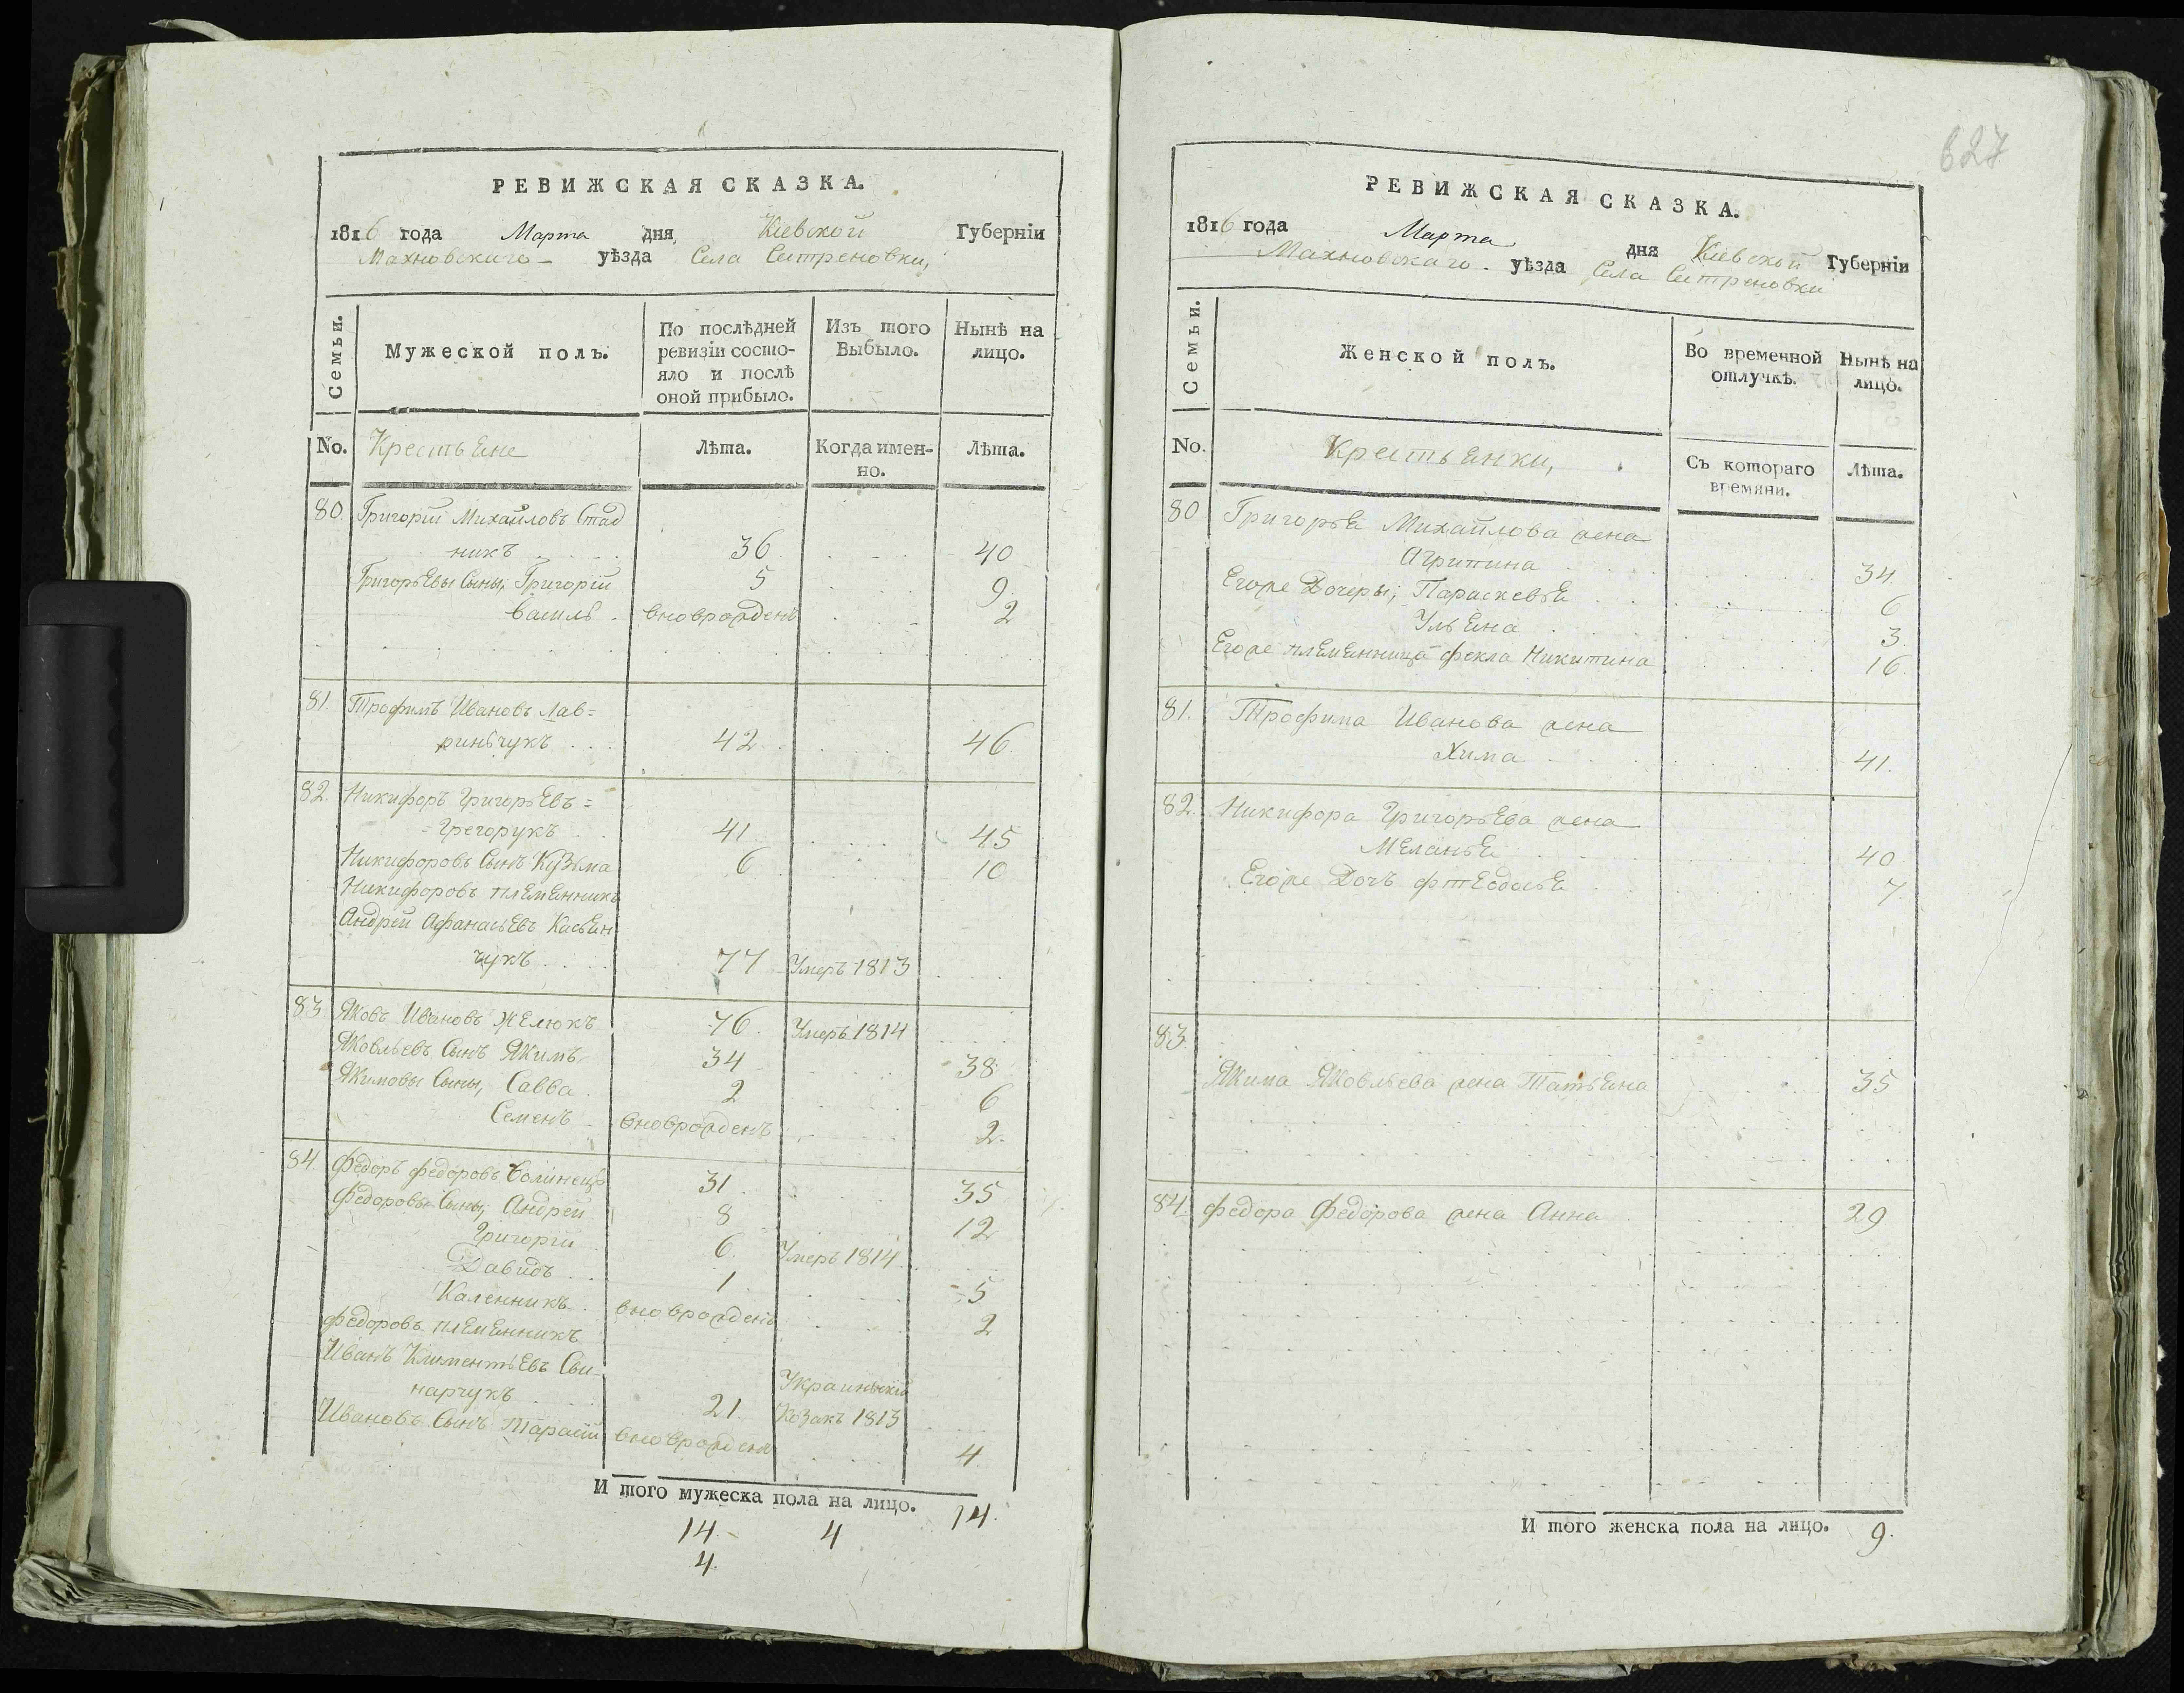 РЕВИЖСКАЯ СКАЗКА.
1816 года Марта дня Кіевской Губерніи
Махновскаго уѣзда Села Ситреновки,
Семьи.
Мужеской полъ.
По послѣдней ревизіи состояло и послѣ оной прибыло.
Изъ того Выбыло.
Нынѣ на лицо.
No. Крестьѧне Лѣта. Когда именно. Лѣта.
80. Григорій Михайловъ Стад
никъ 36 40
Григорьевы Сыны, Григорій 5 9.
Василь вноврожденъ 2
81. Трофимъ Ивановъ Лав=
риньчукъ 42 46.
82. Никифоръ Григорьевъ=
=Грегорукъ 41 45
Никифоровъ Сынъ Кузьма 6 10
Никифоровъ племенникъ
Андрей Афанасьевъ Касьѧн
чукъ 77 Умеръ 1813
83 Яковъ Ивановъ Желюкъ 76. Умеръ 1814
Яковльевъ Сынъ Якимъ 34 38
Якимовы Сыны, Савва 2 6
Семенъ вноврожденъ 2.
84. Федоръ Федоровъ Волинецъ 31 35
Федоровы Сыны, Андрей 8 12
Григорій 6. Умеръ 1814
Давидъ 1 5
Каленникъ вноврожденъ 2
Федоровъ племенникъ
Иванъ Климентьевъ Сви-
нарчукъ 21. Украинскій
Козакъ 1813
Ивановъ Сынъ Тарасій вноврожденъ 4
И того мужеска пола на лицо. 14.
14. 4
4.
627
РЕВИЖСКАЯ СКАЗКА.
1816 года Марта дня Кіевской Губерніи
Махновскаго уѣзда Села Ситреновки
Семьи.
Женской полъ.
Во временной отлучкѣ.
Нынѣ на лицо.
No. Крестьѧнки, Съ котораго времяни. Лѣта.
80 Григорьѧ Михайлова жена
Агрипина 34.
Егоже Дочеры, Параскевьѧ 6
Ульѧна 3.
Егоже племѧнница Фекла Никитина 16.
81. Трофима Иванова жена
Хима 41.
82. Никифора Григорьева жена
Меланьѧ 40
Егоже Дочъ Фтеодосьѧ 7.
83.
Якима Яковльева жена Татьѧна 35
84. Федора Федорова жена Анна 29
И того женска пола на лицо. 9.